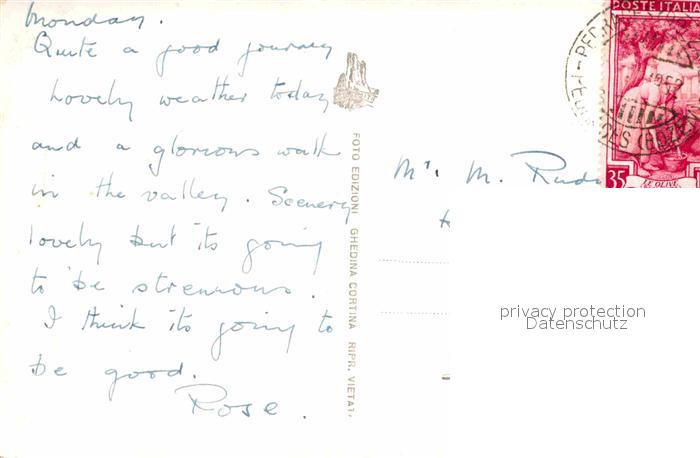 Monday.
Quite a good journey
Lovely weather today
and a glorious walk
in the valley. Scenery
lovely but its going
to be strenuous.
I think its going to
be good.
Rose.
FOTO EDIZIONI GHEDINA CORTINA RIPR. VIETAT.
Mr. M.
POSTE ITALIA
35
LE OLIVE
(BOZEN)
privacy protection
Datenschutz